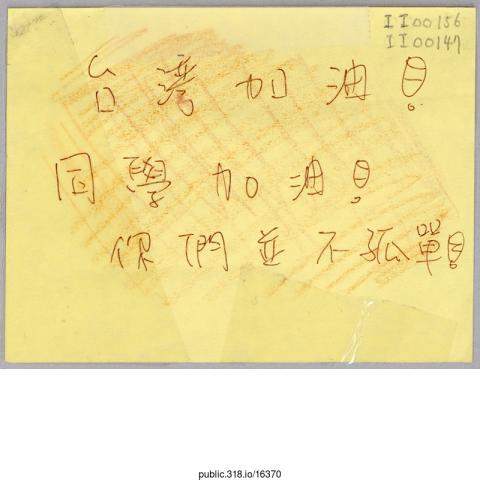 II00156
II00147
台灣加油!
同學加油!
你們並不孤單!
public.318.io/16370